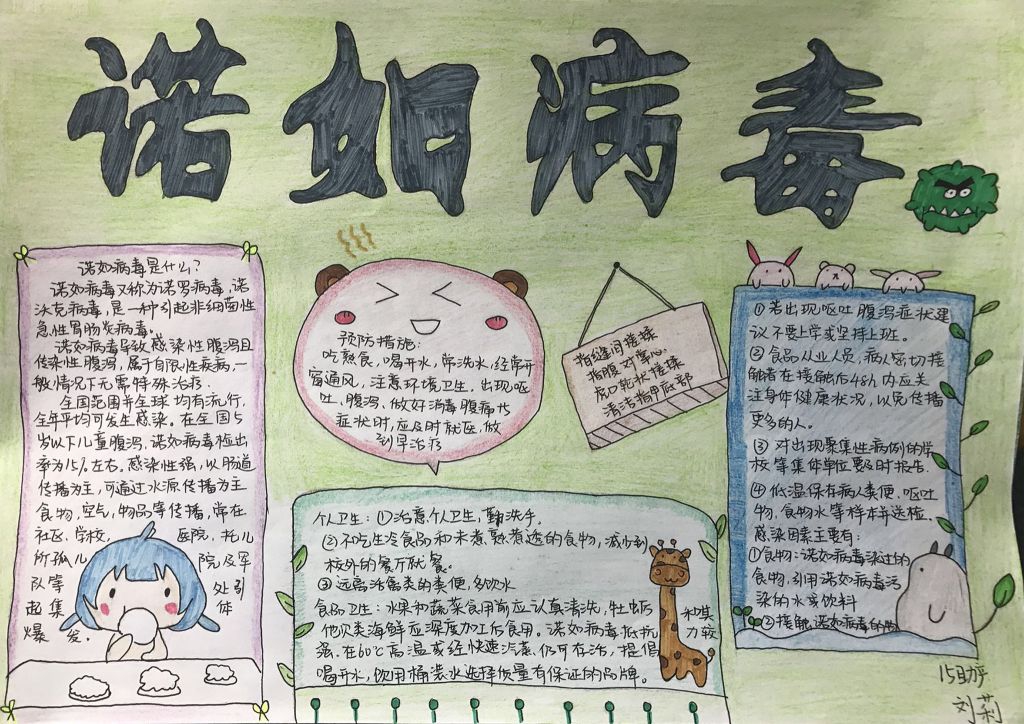 诺如病毒
诺如病毒是什么?
诺如病毒又称为诺罗病毒,诺
沃克病毒,是一种引起非细菌性
急性胃肠炎病毒。
诺如病毒导致感染性腹泻且
传染性腹泻,属于自限性疾病,一
般情况下无需特殊治疗.
全国范围并全球均有流行,
全年平均可发生感染。在全国5
岁以下儿童腹泻,诺如病毒检出
率为15%左右。感染性强,以肠道
传播为主,可通过水源传播为主
食物,空气,物品等传播,常在
社区、学校, 医院,托儿
所孤儿 院及军
队等 处引
起集 体
爆发.
预防措施:
吃熟食,喝开水,常洗水,经常开
窗通风,注意环境卫生,出现呕
吐、腹泻、做好消毒腹痛
症状时,应及时就医,做
到早治疗
指缝间搓揉
指腹对掌心
清洁指甲底部
个人卫生:①注意个人卫生,勤洗手.
②不吃生冷食品和未煮熟煮透的食物,减少到
校外的餐厅就餐。
③远离活禽类的粪便,多饮水
食品卫生:水果和蔬菜食用前应认真清洗,牡蛎
他贝类海鲜应深度加工后食用。诺如病毒抵抗
和其
力较
强,在60℃高温或经快速汽蒸仍可存活,提倡
喝开水,饮用桶装水选择质量有保证的品牌。
①若出现呕吐腹泻症状建
议不要上学或坚持上班。
②食品从业人员,病人密切接
触者在接触后48h内应关
注身体健康状况,以免传播
更多的人。
③对出现聚集性病例的学
校等集体单位要及时报告.
④低温保存病人粪便、呕吐
物,食物水等样本并送检.
感染因素主要有:
①食物:诺如病毒染过的
食物,引用诺如病毒污
染的水或饮料
②接触诺如病毒的物
15助产
刘莉